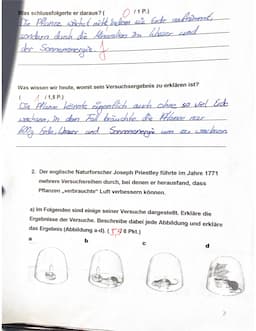 Was schlussfolgerte er daraus? ( 0 /1 P.)
Die Pflanze wächst nicht indem sie Erde aufnimmt,
sondern durch die Mineralien im Wasser und
der Sonnenenergie.
Was wissen wir heute, womit sein Versuchsergebnis zu erklären ist?
( 1 /1,5 P.)
Die Pflanze könnte eigentlich auch ohne so viel Erde
wachsen. In dem Fall bräuchte die Pflanze nur
100g Erde, Wasser und Sonnenenergie um zu wachsen
2. Der englische Naturforscher Joseph Priestley führte im Jahre 1771
mehrere Versuchsreihen durch, bei denen er herausfand, dass
Pflanzen „verbrauchte“ Luft verbessern können.
a) Im Folgenden sind einige seiner Versuche dargestellt. Erkläre die
Ergebnisse der Versuche. Beschreibe dabei jede Abbildung und erkläre
das Ergebnis (Abbildung a-d). ( /6 Pkt.)
a b c d